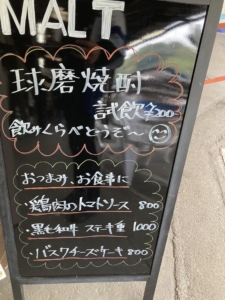 MALT
球磨焼酎
試飲¥200
飲みくらべどうぞ〜
おつまみ、お食事に
・鶏肉のトマトソース 800
・黒毛和牛 ステキ重 1000
・バスクチーズケーキ 800